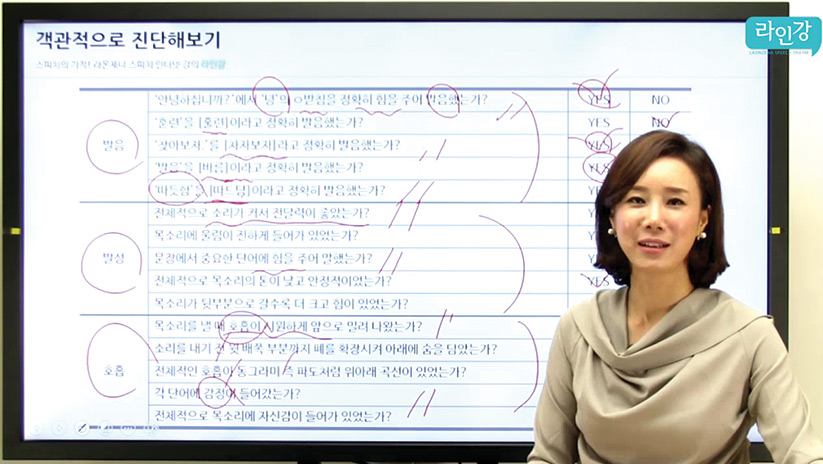 라인강
객관적으로 진단해보기
스피치의 기적! 라온제나 스피치 인터넷 강의 라인강
발음
'안녕하십니까?'에서 '녕'의 ㅇ받침을 정확히 힘을 주어 발음했는가? YES NO
'훈련'을 [훌련]이라고 정확히 발음했는가? YES NO
'찾아보자.'를 [차자보자]라고 정확히 발음했는가? YES
'발음'을 [바름]이라고 정확히 발음했는가? YES
'따듯함'을 [따드탐]이라고 정확히 발음했는가? YES
발성
전체적으로 소리가 커서 전달력이 좋았는가? YE
목소리에 울림이 진하게 들어가 있었는가? YE
문장에서 중요한 단어에 힘을 주어 말했는가? YE
전체적으로 목소리의 톤이 낮고 안정적이었는가? YES
목소리가 뒷부분으로 갈수록 더 크고 힘이 있었는가?
호흡
목소리를 낼 때 호흡이 시원하게 앞으로 밀려 나왔는가?
소리를 내기 전 윗 배쪽 부분까지 폐를 확장시켜 아래에 숨을 담았는가?
전체적인 호흡이 동그라미 즉 파도처럼 위아래 곡선이 있었는가?
각 단어에 감정이 들어갔는가?
전체적으로 목소리에 자신감이 들어가 있었는가?